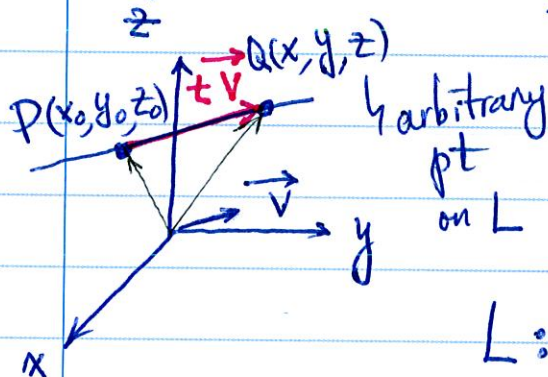 z
Q(x, y, z)
t V
P(x₀, y₀, z₀)
↳ arbitrary
pt
on L
V
y
L:
x